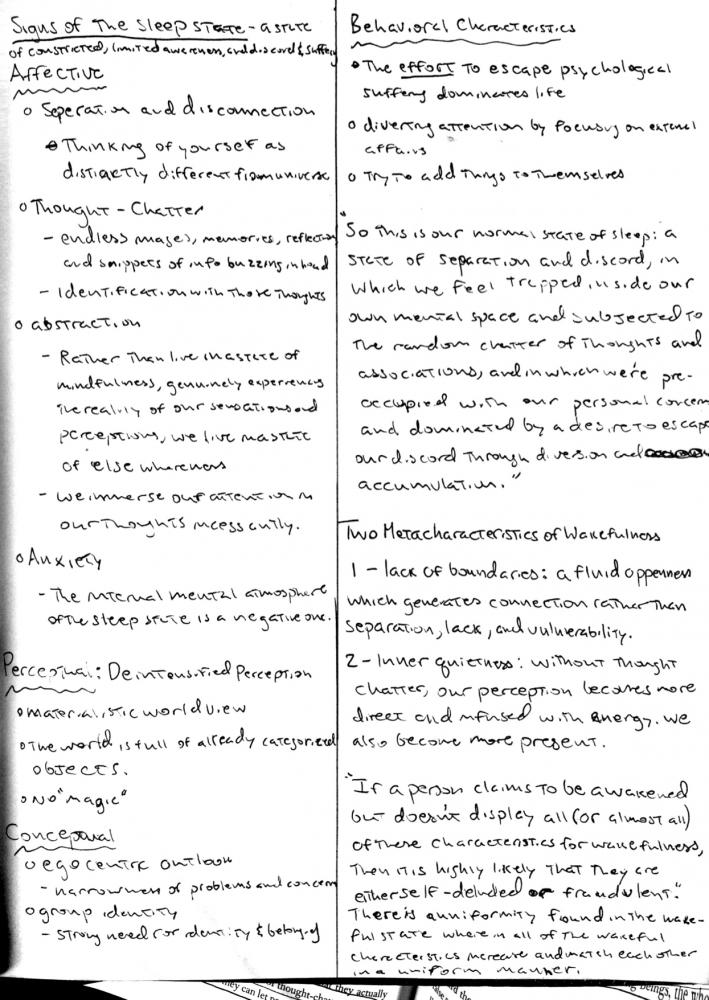 Signs of The Sleep State - a state
of constricted, limited awareness, and discord & suffering
Affective
o Seperation and disconnection
Thinking of yourself as
distinctly different from universe
o Thought - Chatter
- endless images, memories, reflections
and snippets of info buzzing in head
- Identification with those thoughts
o abstraction
- Rather than live in a state of
mindfulness, genuinely experiencing
the reality of our sensations and
perceptions, we live in a state
of elsewhereness
- we immerse our attention in
our thoughts incessantly.
o Anxiety
- The internal mental atmosphere
of the sleep state is a negative one.
Perceptual: Deintensified Perception
o materialistic world view
o The world is full of already categorized
objects.
o No "magic"
Conceptual
o egocentric outlook
- narrowness of problems and concern
o group identity
- strong need for identity & belong.
Behavioral Characteristics
• The effort To escape psychological
suffering dominates life
o diverting attention by focusing on external
affairs
o Try to add things to Themselves
"So This is our normal state of sleep: a
state of separation and discord, in
which we feel trapped inside our
own mental space and subjected to
the random chatter of thoughts and
associations, and in which we're pre-
occupied with our personal concerns
and dominated by a desire to escape
our discord through diversion and
accumulation."
Two Metacharacteristics of Wakefulness
1 - lack of boundaries: a fluid oppenness
which generates connection rather than
separation, lack, and vulnerability.
2 - Inner quietness: without thought
chatter, our perception becomes more
direct and infused with energy. we
also become more present.
"If a person claims to be awakened
but doesn't display all (or almost all)
of these characteristics for wakefulness,
Then it is highly likely that they are
either self-deluded or fraudulent."
There is a uniformity found in the wake-
ful state wherein all of the wakeful
characteristics increase and match each other
in a uniform manner.
of thought-cha
they actually
they can let
beings, the